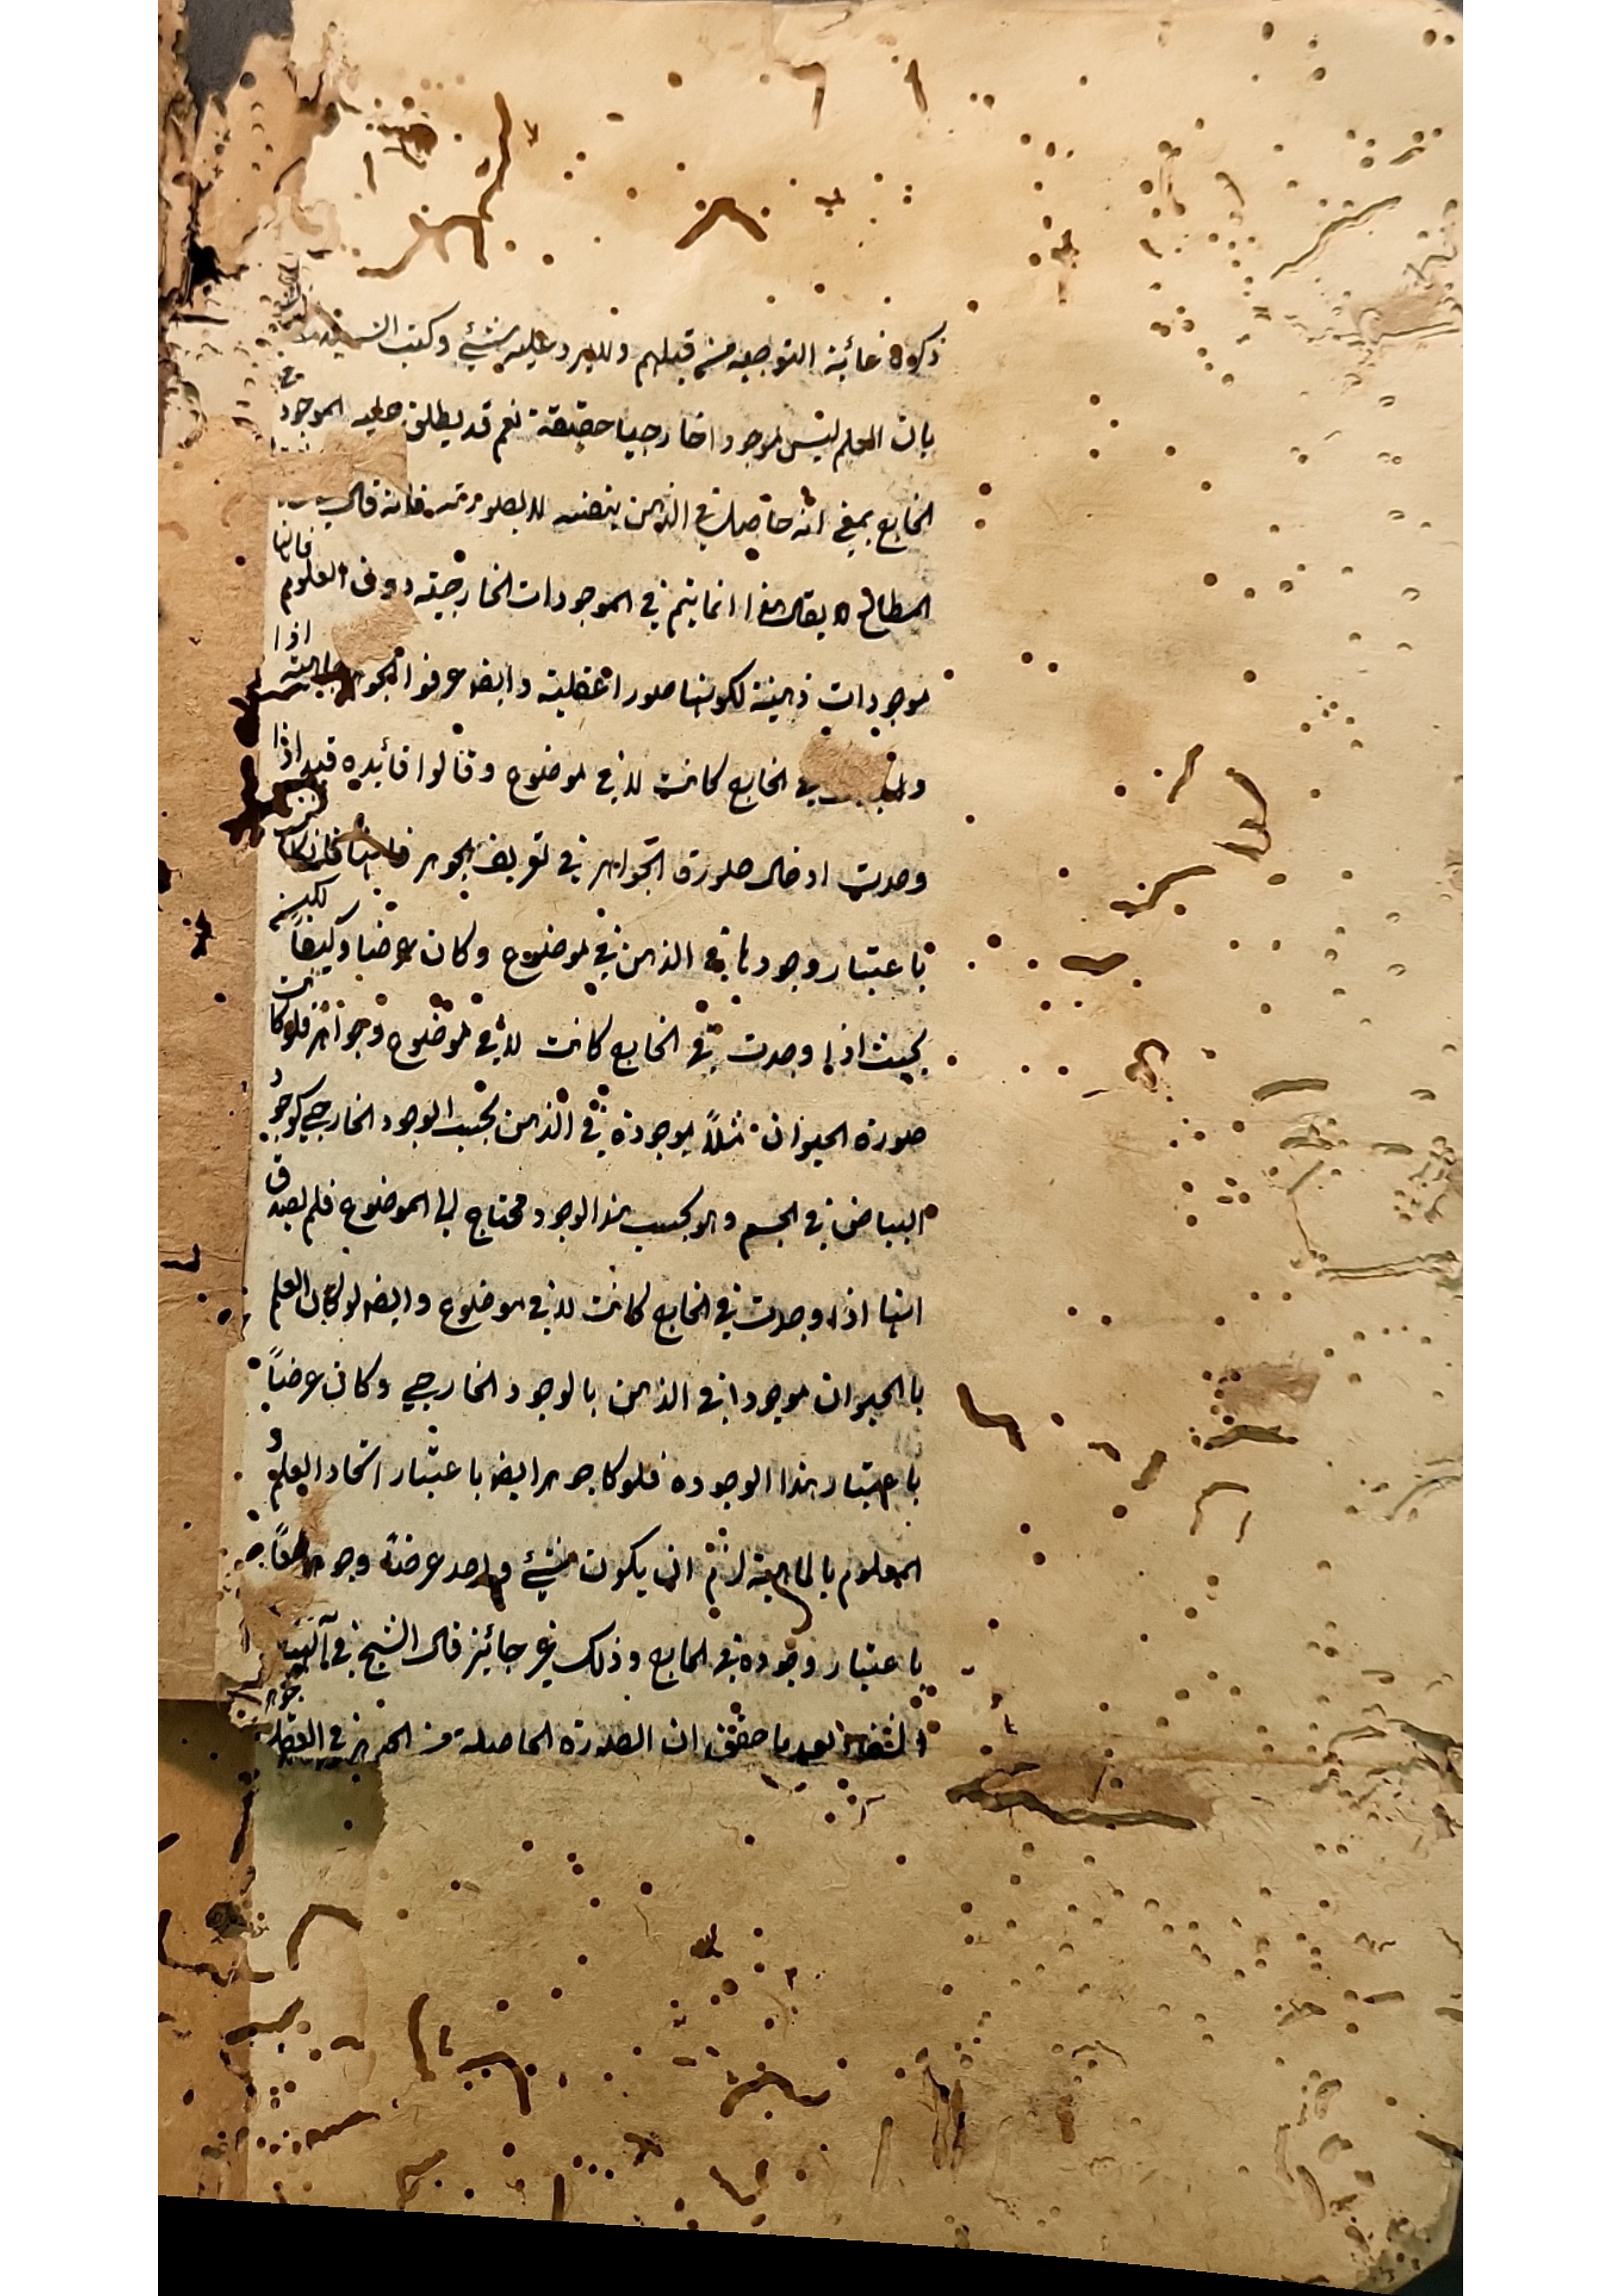 ذكره غاية التوجيه من قبلهم ولا يرد عليه شئ وكتب السيد
بان العلم ليس موجودا خارجيا حقيقة نعم قد يطلق عليه الموجود
الخارج بمعنى انه حاصل في الذهن بنفسه لا بصورته فانه قال
المطالع لا يقال هذا انما يتم في الموجودات الخارجية دون العلوم فانها
موجودات ذهنية لكونها صورا عقلية وايضا عرفوا الجوهر بماهية اذا
في الخارج كانت لا في موضوع وقالوا فائدة قيد اذا
وجدت ادخال صورة الجواهر في تعريف الجوهر فانها
باعتبار وجودها في الذهن في موضوع وكان عرضا وكيفاً لكنه
بحيث اذا وجدت في الخارج كانت لا في موضوع وجواهر فلو كانت
صورة الحيوان مثلاً موجودة في الذهن بحسب الوجود الخارجي كوجود
البياض في الجسم وهو بحسب هذا الوجود محتاج الى الموضوع فلم يصدق
انها اذا وجدت في الخارج كانت لا في موضوع وايضا لو كان العلم
بالحيوان موجودا في الذهن بالوجود الخارجي وكان عرضاً
باعتبار هذا الوجوده فلو كا جوهرا ايضا باعتبار اتحاد العلم و
المعلوم بالماهية لزم ان يكون شئ واحد عرضا وجوهرا معاً
باعتبار وجوده في الخارج وذلك غير جائز قال الشيخ في
الشفاء بعد ما حقق ان الصورة الحاصلة من الجوهر في العقل جوهر